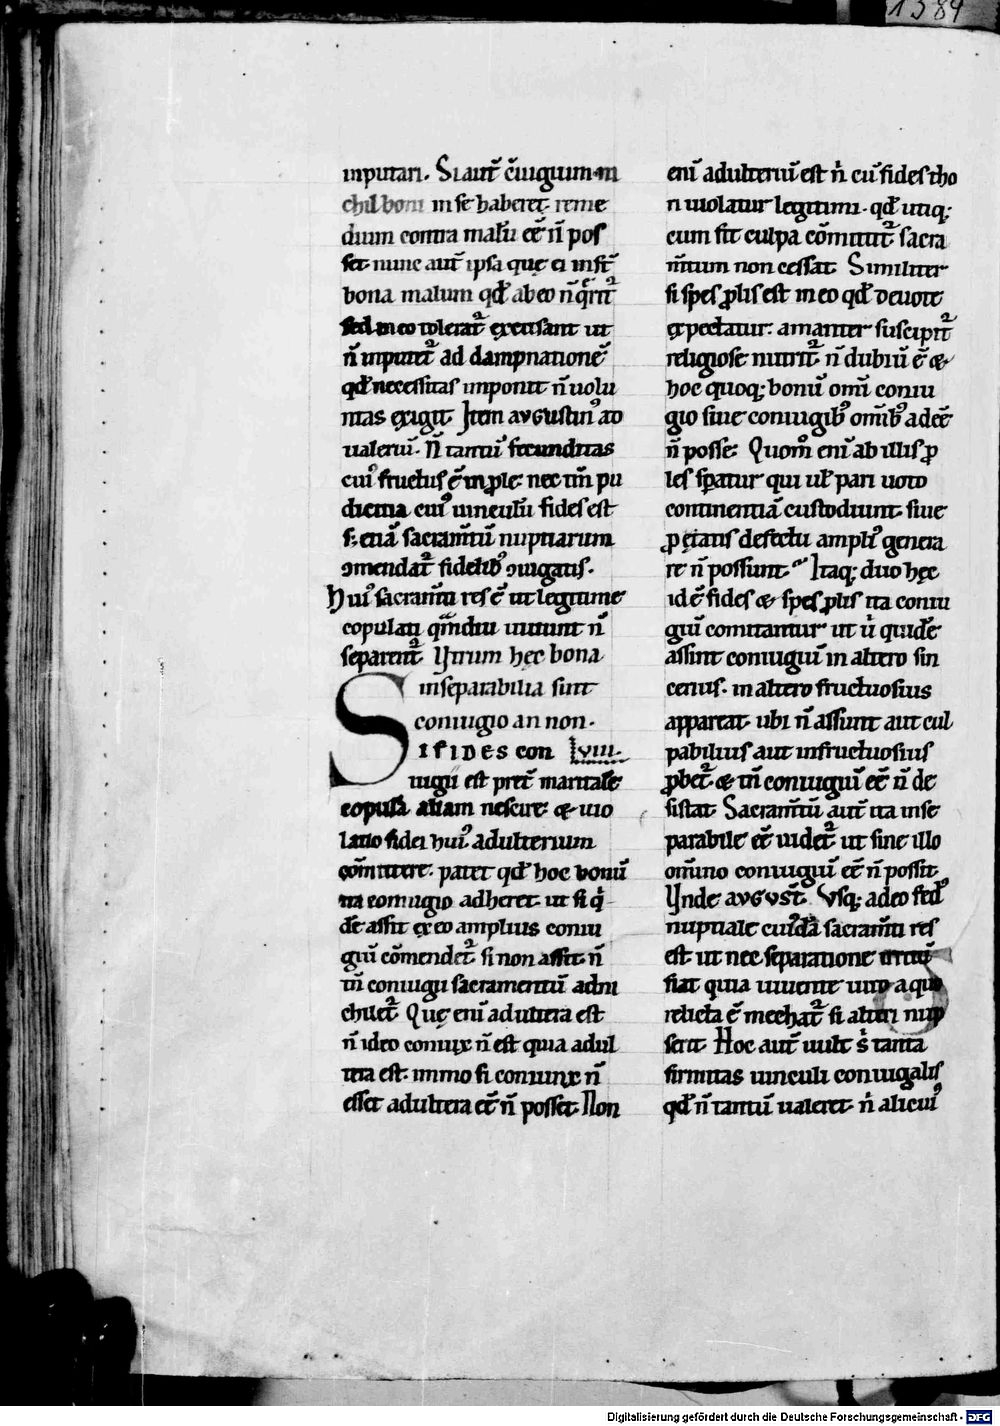 1384
inputari. Si aut̄ c̄iugium ni
chil boni in se haberet. reme
dium contra malū eē n̄ pos
set. nunc aut̄ ipsa quę ei inst̄
bona malum qd̄ ab eo n̄ q̄rit᷑
sed in eo tolerat᷑ excusant ut
n̄ inputet᷑ ad dampnationē
qd̄ necessitas imponit n̄ uolu
ntas exigit. Item augustin᷒ ad
ualeriū. N̄ tantū fecunditas
cui᷒ fructus ē in ꝓle. nec tm̄ pu
dicitia cui᷒ uinculū fides est
s; etiā sacram̄tū nuptiarum
ꝯmendat᷑ fidelib᷒ ꝯiugatis.
Hui᷒ sacram̄ti res ē ut legitime
copulati qm̄diu uiuunt n̄
separent᷑. Vtrum hęc bona
inseparabilia sint
coniugio an non.
SI FIDES con lviii.
iugii est pret̄ maritalē
copulā aliam nescire. & uio
latio fidei hui᷒ adulterium
cōmittere. patet qd̄ hoc bonū
ita coniugio adheret. ut si q̇
dē assit ex eo amplius coniu
giū cōmendet᷑ si non assit. n̄
tn̄ coniugii sacramentū adni
chilet᷑. Quę enī adultera est
n̄ ideo coniux n̄ est quia adul
tera est. immo si coniunx n̄
esset adultera eē n̄ posset. Non
enī adulteriū est n̄ cū fides tho
ri uiolatur legitimi. qd̄ utiq;
cum sit culpa cōmittit᷑ sacra
m̄tum non cessat. Similiter
si spes ꝓlis est in eo qd̄ deuote
expectatur. amanter suscipit᷑
religiose nutrit᷑ n̄ dubiū ē &
hoc quoq; bonū omī coniu
gio siue coniugib᷒ omīb᷒ adeē
n̄ posse. Quom̄ enī ab illis ꝓ
les sꝑatur qui ul̄ pari uoto
continentiā custodiunt. siue
ꝓ ętatis defectu ampli᷒ genera
re n̄ possunt. Itaq; duo hęc
id ē fides & spes ꝓlis ita coniu
giū comitantur ut u̇ quidē
assint coniugiū in altero sin
cerius. in altero fructuosius
appareat. ubi n̄ assunt aut cul
pabilius aut infructuosius
ꝓbet᷑. & tn̄ coniugiū eē n̄ de
sistat. Sacram̄tū aut̄ ita inse
parabile eē uidet᷑ ut sine illo
omīno coniugiū eē n̄ possit.
Vnde august̄. Vsq; adeo fed᷒
nuptiale cui᷒dā sacram̄ti res
est ut nec separatione irritū
fiat quia uiuente uiro a quo
relicta ē mechat᷑ si alteri nup
serit. Hoc aut̄ uult ṡ tanta
firmitas uinculi coniugalis
qd̄ n̄ tantū ualeret. n̄ alicui᷒
Digitalisierung gefördert durch die Deutsche Forschungsgemeinschaft - DFG